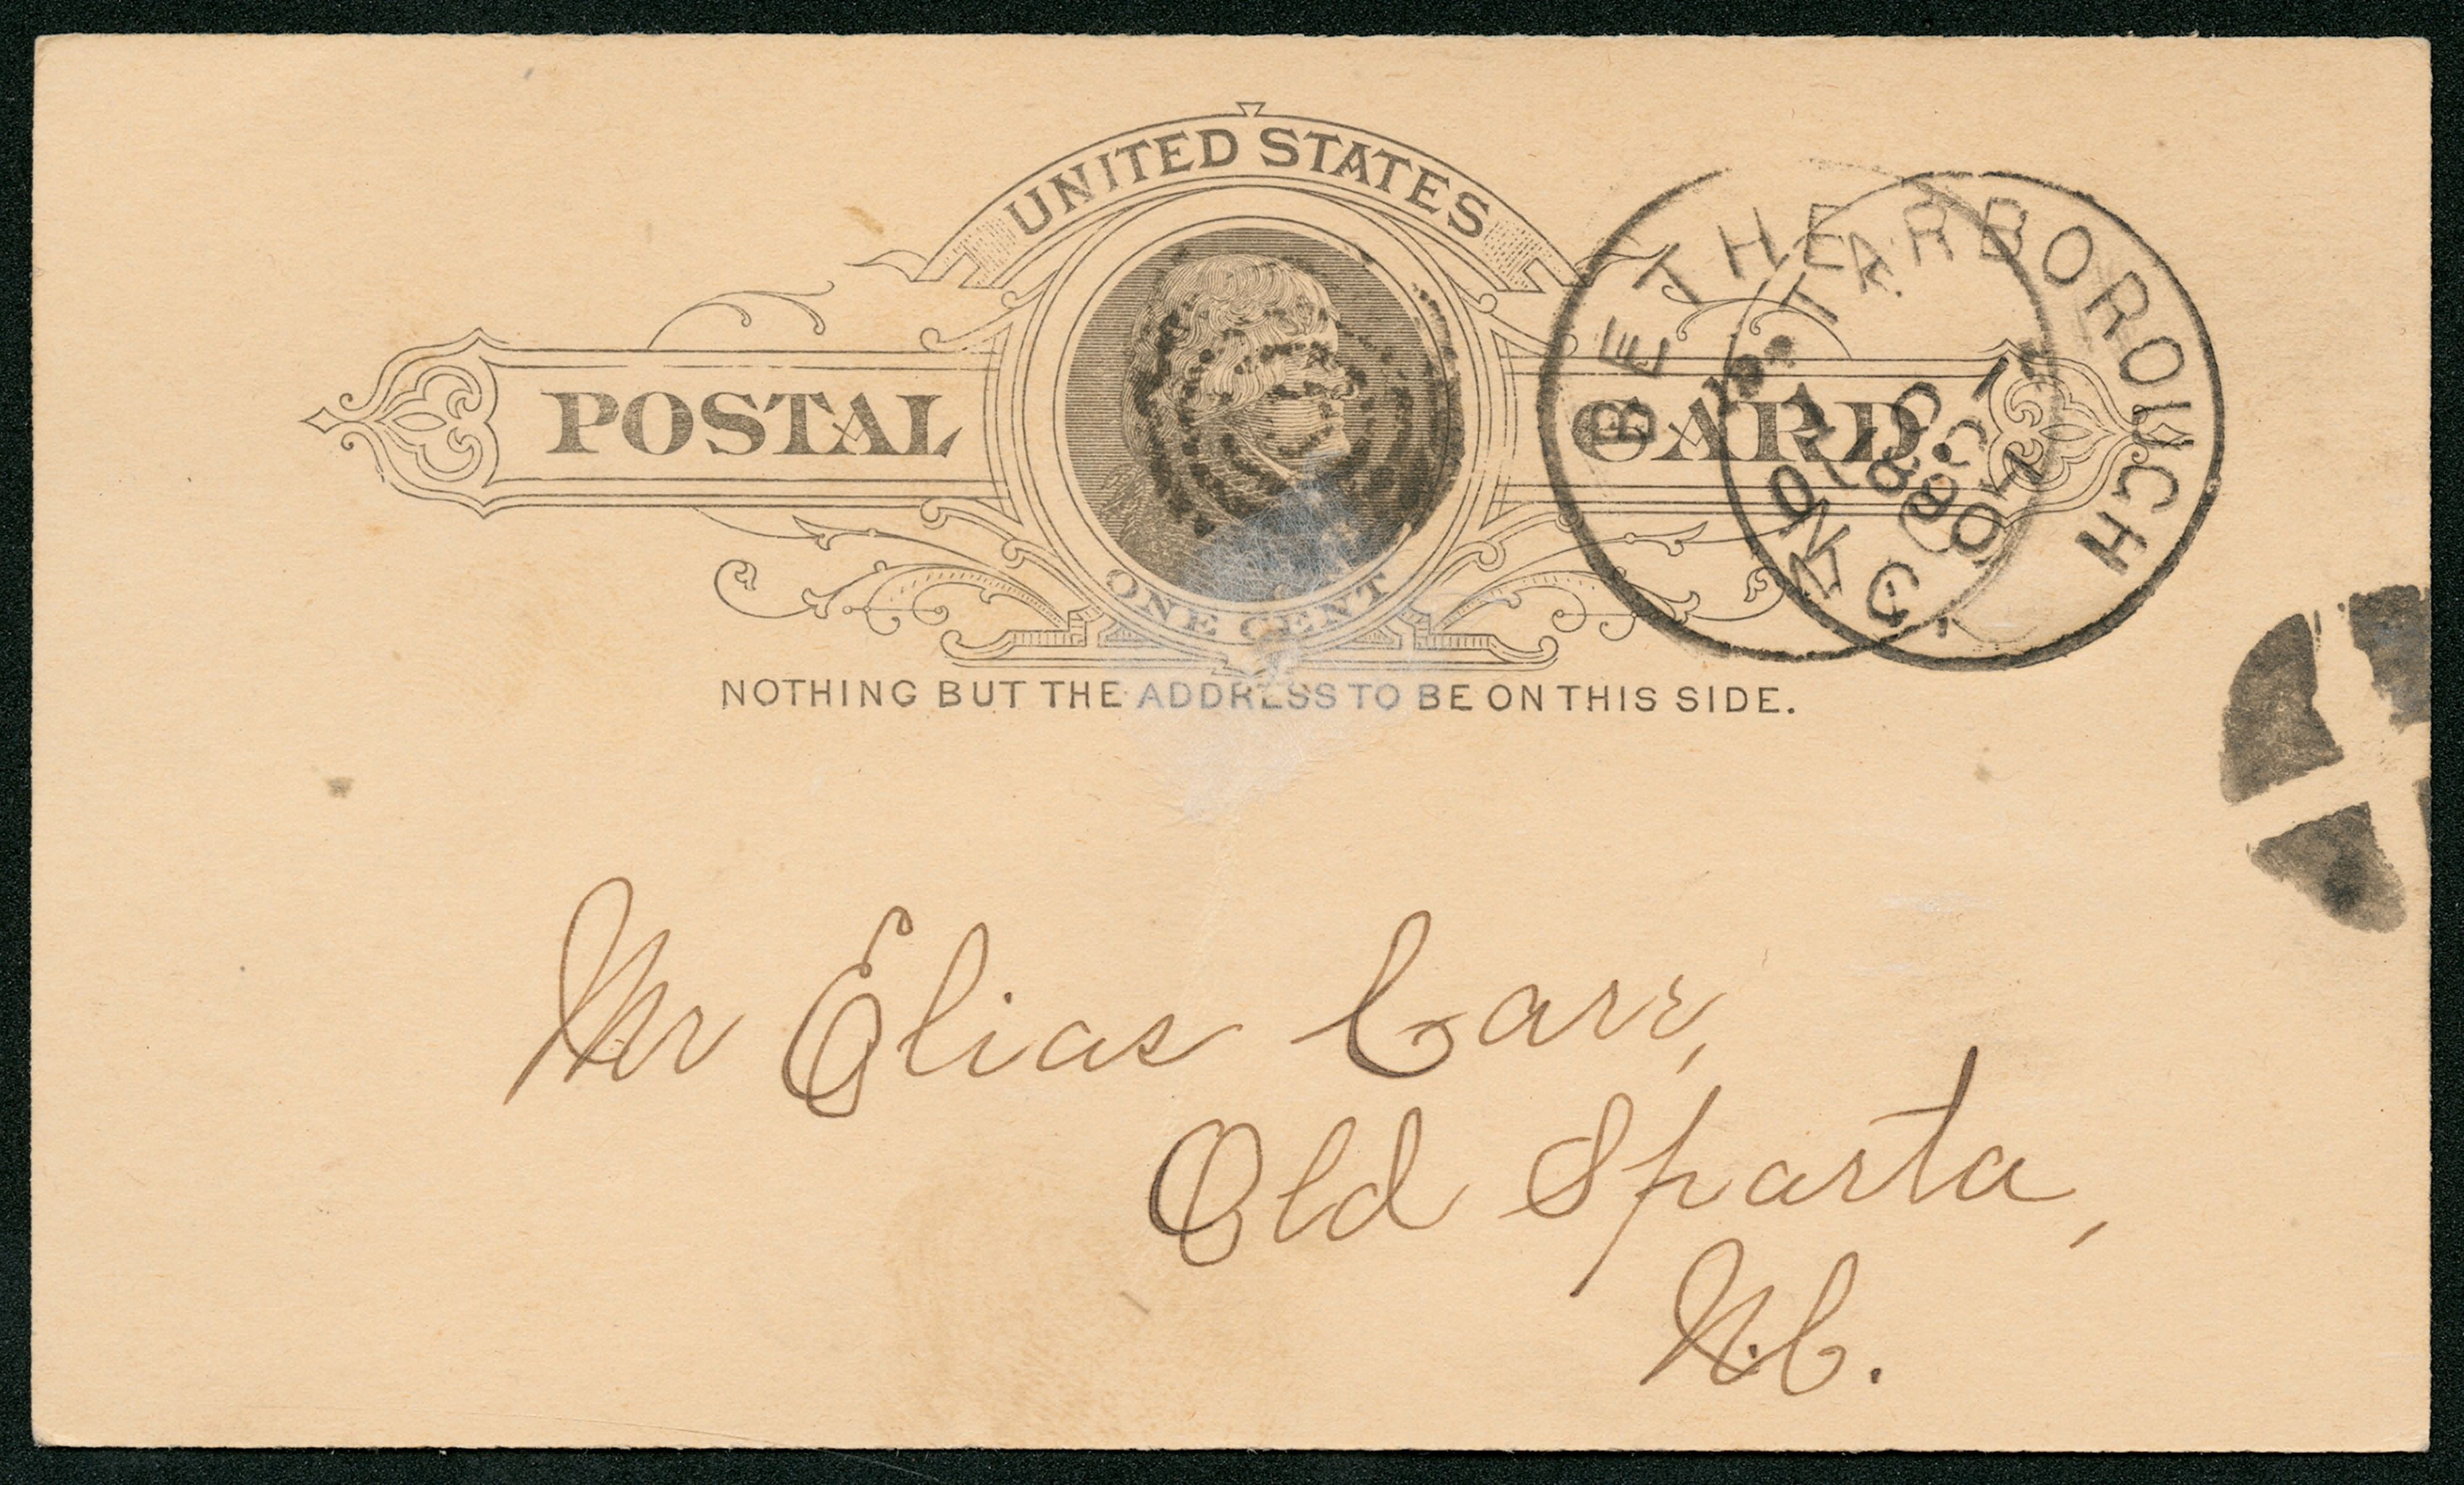 UNITED STATES
POSTAL CARD.
ONE CENT
NOTHING BUT THE ADDRESS TO BE ON THIS SIDE.
BETHE
TARBOROUGH
N.C.
Mr Elias Carr,
Old Sparta,
N.C.